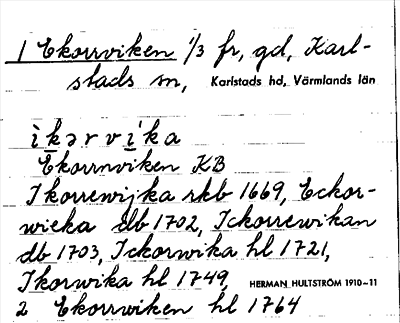 1 Ekorrviken 1/3 fr, gd, Karl-
stads sn, Karlstads hd, Värmlands län
ikərvika
Ekorrnviken KB
Ikorrewijka rkb 1669, Eckor-
wieka db 1702, Ickorrewikan
db 1703, Ickorwika hl 1721,
Ikorwika hl 1749, HERMAN HULTSTRÖM 1910-11
2 Ekorrwiken hl 1764